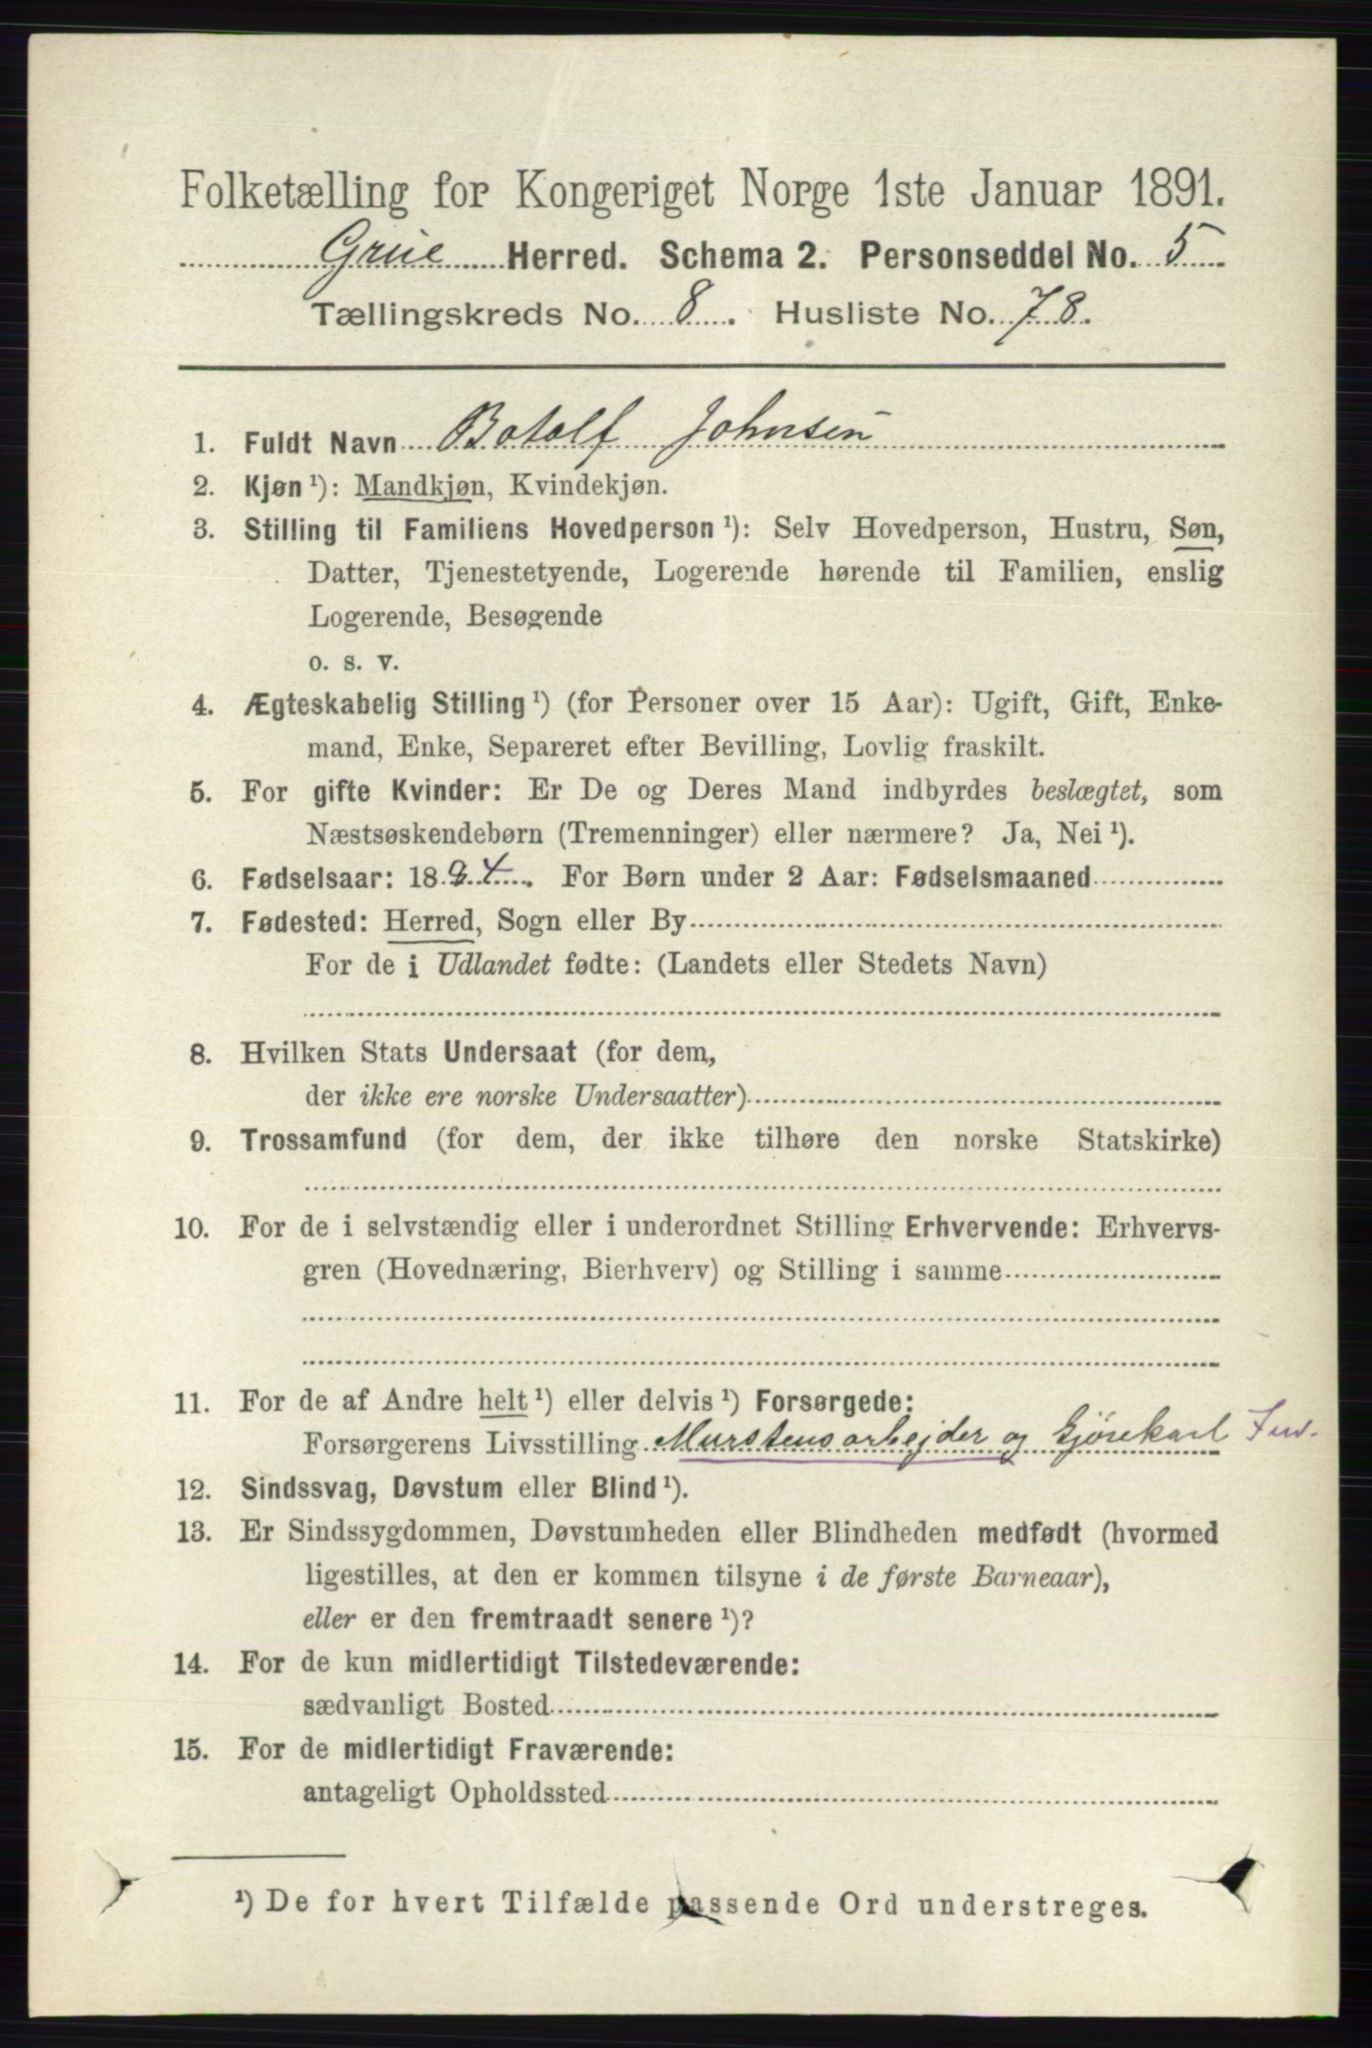 Folketælling for Kongeriget Norge 1ste Januar 1891.
Grue Herred. Schema 2. Personseddel No. 5
Tællingskreds No. 8. Husliste No. 78.
1. Fuldt Navn Botolf Johnsen
2. Kjøn ¹): Mandkjøn, Kvindekjøn.
3. Stilling til Familiens Hovedperson ¹): Selv Hovedperson, Hustru, Søn,
Datter, Tjenestetyende, Logerende hørende til Familien, enslig
Logerende, Besøgende
o. s. v.
4. Ægteskabelig Stilling ¹) (for Personer over 15 Aar): Ugift, Gift, Enke-
mand, Enke, Separeret efter Bevilling, Lovlig fraskilt.
5. For gifte Kvinder: Er De og Deres Mand indbyrdes beslægtet, som
Næstsøskendebørn (Tremenninger) eller nærmere? Ja, Nei ¹).
6. Fødselsaar: 1884. For Børn under 2 Aar: Fødselsmaaned
7. Fødested: Herred, Sogn eller By
For de i Udlandet fødte: (Landets eller Stedets Navn)
8. Hvilken Stats Undersaat (for dem,
der ikke ere norske Undersaatter)
9. Trossamfund (for dem, der ikke tilhøre den norske Statskirke)
10. For de i selvstændig eller i underordnet Stilling Erhvervende: Erhvervs-
gren (Hovednæring, Bierhverv) og Stilling i samme
11. For de af Andre helt ¹) eller delvis ¹) Forsørgede:
Forsørgerens Livsstilling Murstensarbejder og Kjørekarl
12. Sindssvag, Døvstum eller Blind ¹).
13. Er Sindssygdommen, Døvstumheden eller Blindheden medfødt (hvormed
ligestilles, at den er kommen tilsyne i de første Barneaar),
eller er den fremtraadt senere ¹)?
14. For de kun midlertidigt Tilstedeværende:
sædvanligt Bosted
15. For de midlertidigt Fraværende:
antageligt Opholdssted
¹) De for hvert Tilfælde passende Ord understreges.